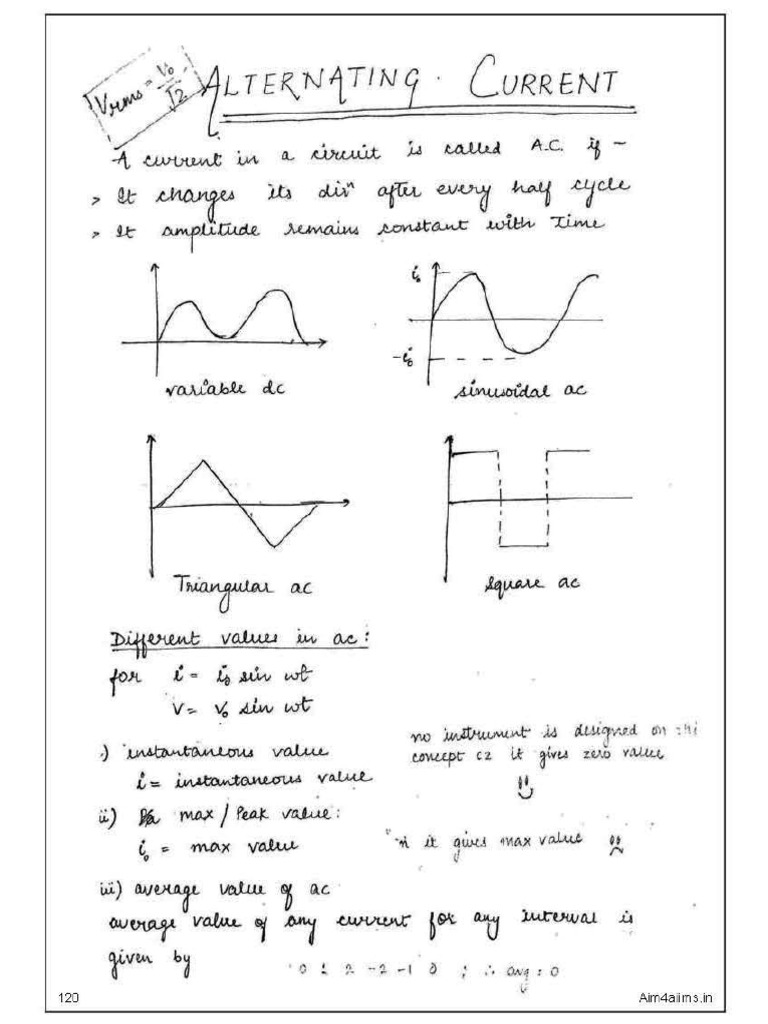 Vrms = V₀/√2
ALTERNATING CURRENT
A current in a circuit is called A.C. if –
> It changes its dirⁿ after every half cycle
> It amplitude remains constant with Time
i₀
-i₀
variable dc
sinusoidal ac
Triangular ac
square ac
Different values in ac:
for i = i₀ sin wt
v = v₀ sin wt
i) instantaneous value
i = instantaneous value
no instrument is designed on
concept cz it gives zero value
ii) max / Peak value:
i₀ = max value
it gives max value
iii) average value of ac
average value of any current for any interval is
given by
0 1 2 -2 -1 0 ; ∴ avg = 0
120
Aim4aiims.in